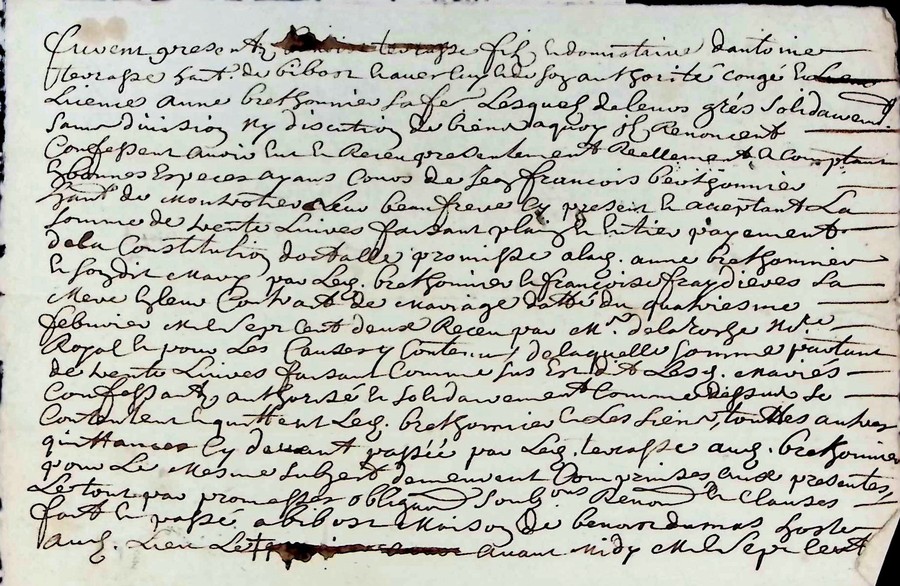 furent presentz terrasse filz & donnataire d'antoine
terrasse hant. de bibost & avec luy & de son authorité congé &
licence anne brethonnier sa fe. Lesquelz de leurs grés solidairement
sans division ny discution de biens a quoy ilz Renoncent
Confessent avoir eu & Receu presentement Reellement & Comptant
En bonnes Especes ayans Cours de Sr. françois brethonnier
hant. de Montrotier leur beau frere Cy present & acceptant La
Somme de trente Livres faisant plain & entier payement
de la Constitution dottalle promisse a lad. anne brethonnier
& sond. Mary par Led. brethonnier & françoise fraydieres Sa
Mere En leur Contrat de Mariage datté du quatriesme
febvrier Mil Sept Cent deux Receu par Mre. delaforge Nore.
Royal & pour Les Causes y Contenues, de laquelle Somme partant
de trente Livres faisant Comme Sus Est dit Lesd. Mariés
Confessantz authorisé & Solidairement Comme dessus Se
Contentent & quittent Led. brethonnier & Les Siens, touttes autres
quittances Cy devant passée par Led. terrasse aud. brethonnier
pour Le Mesme Subject demeurent Comprinses aux presentes,
Le tout par promesses obligaon. Soub.ons Renon. & Clauses
fait & passé a bibost Maison de benoist dumas hoste
aud. Lieu Le avant Midy Mil Sept Cent